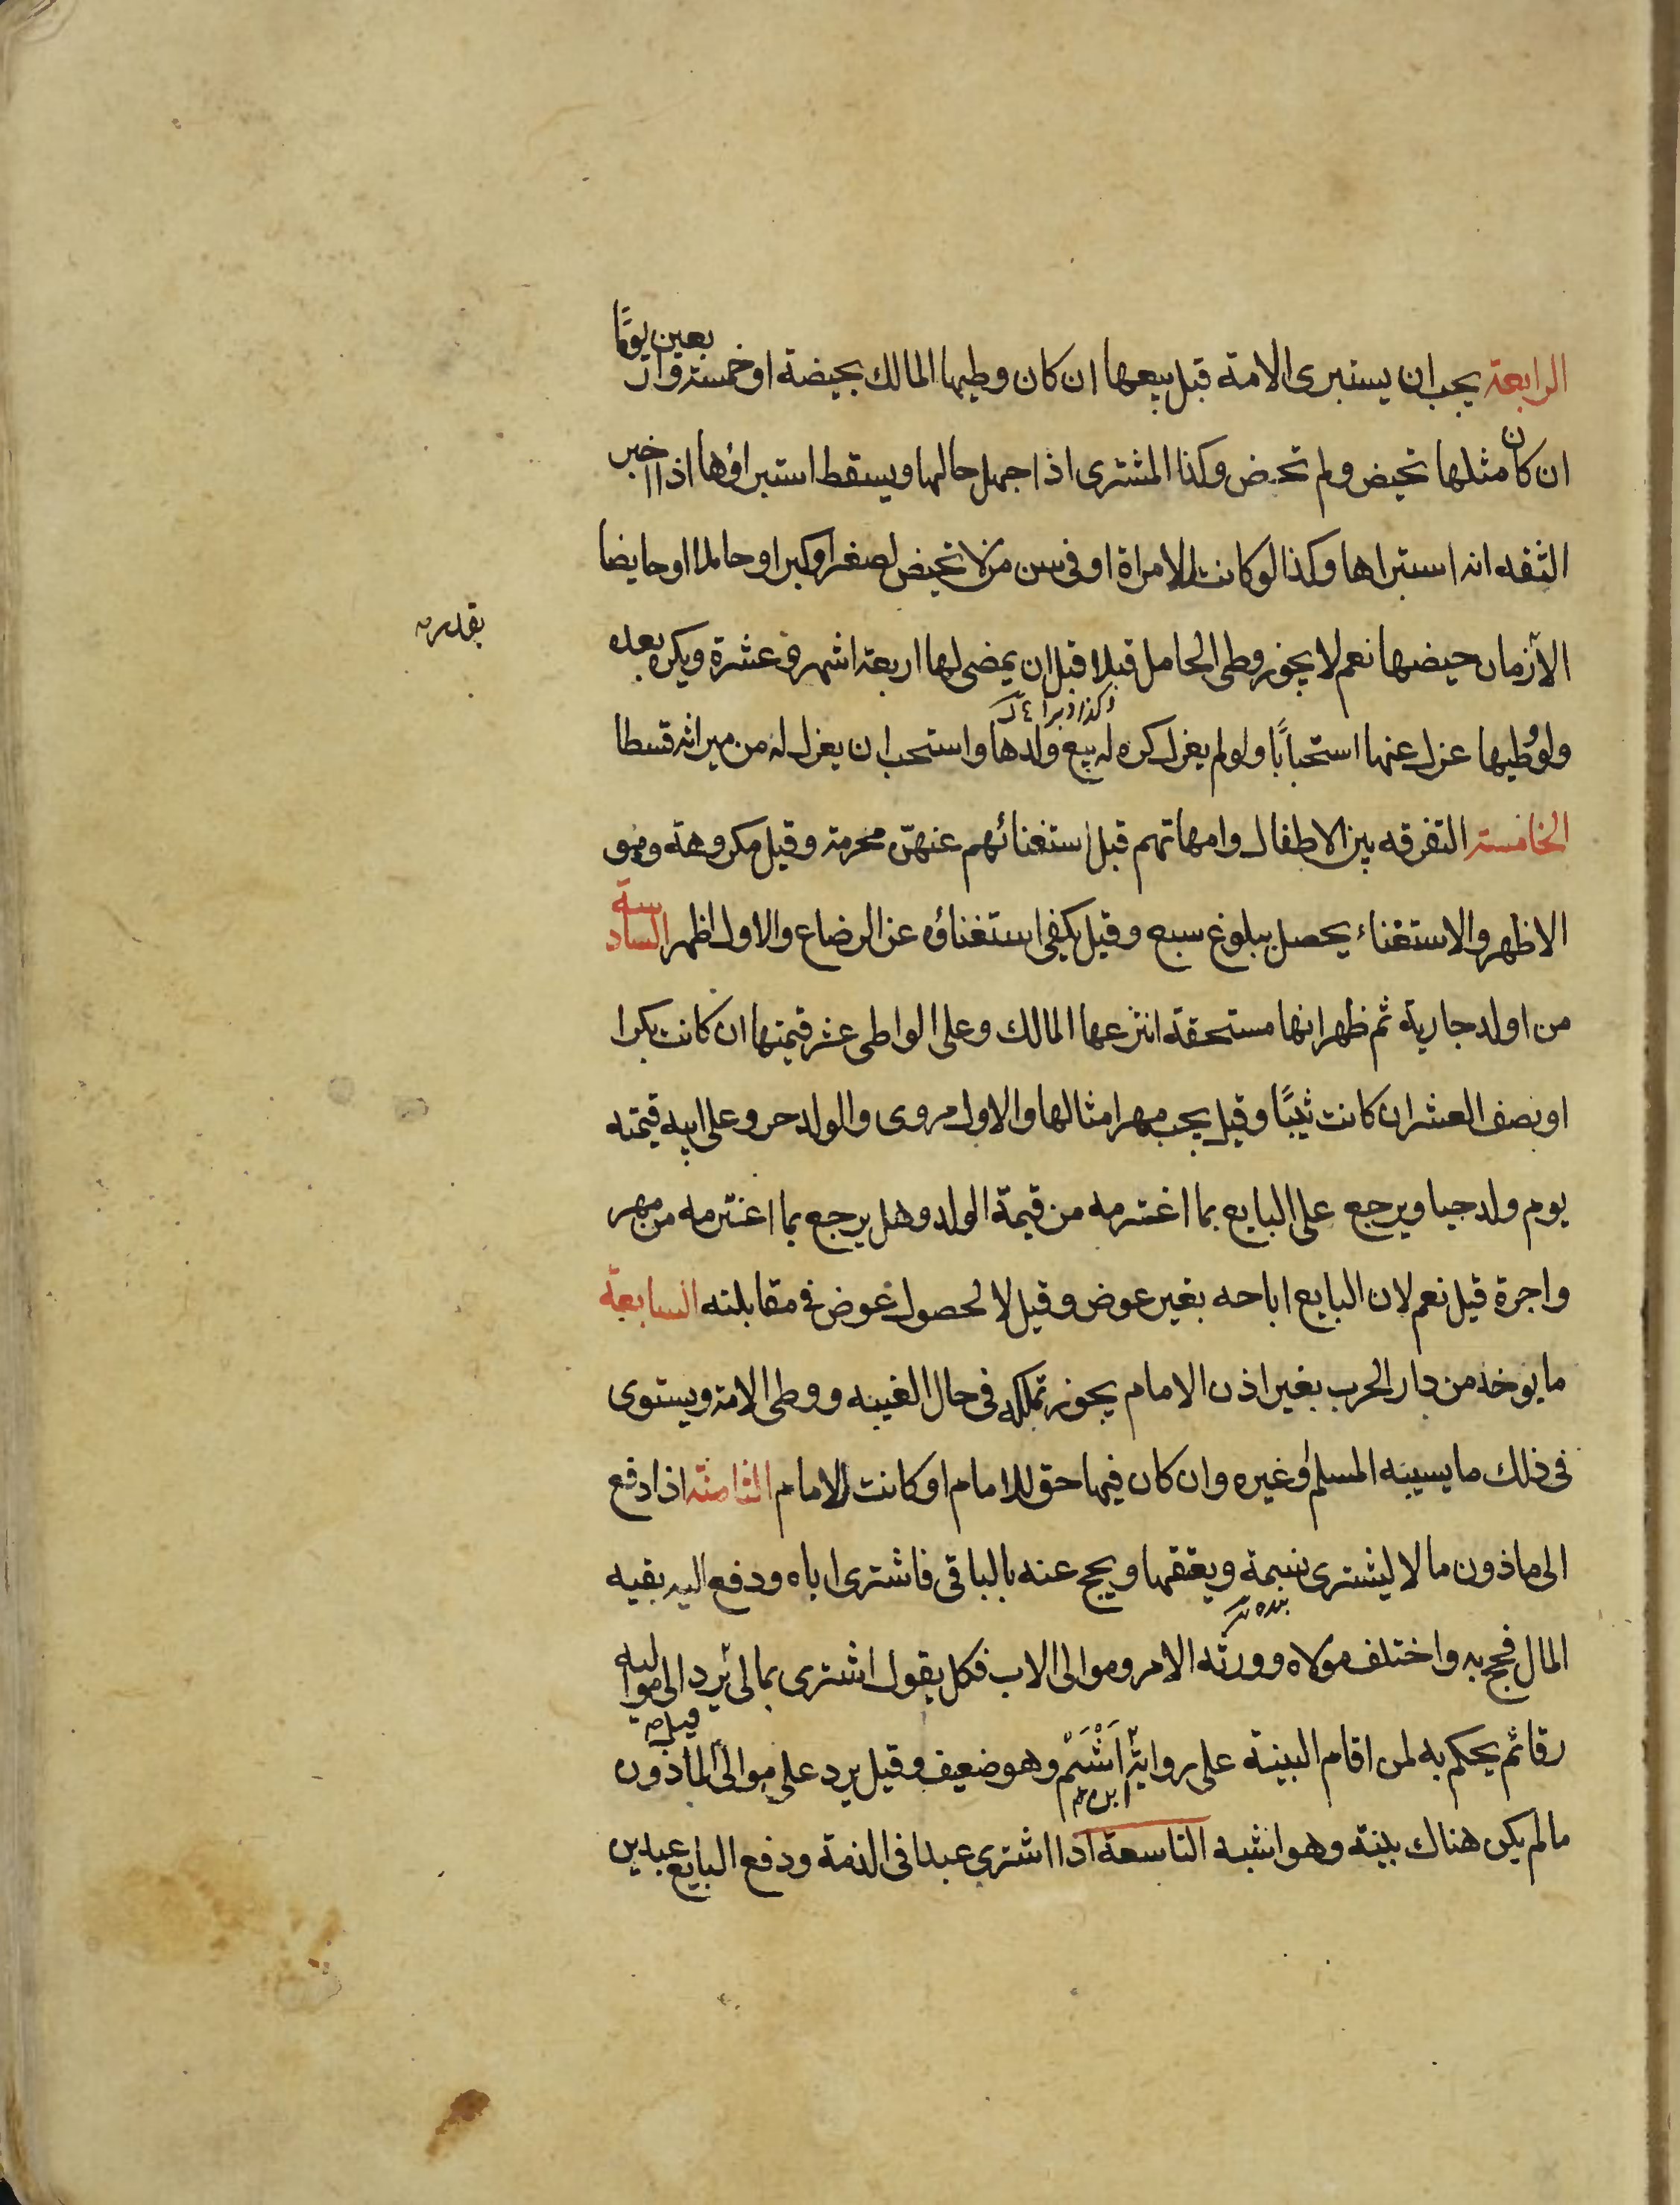 الرابعة يجب ان يستبرى الامة قبل بيعها ان كان وطيها المالك بحيضة او خمسة واربعين يومًا
ان كان مثلها تحيض ولم تحض وكذا المشترى اذا جهل حالها ويسقط استبراؤها اذا اخبر
الثقه انه استبراها وكذا لو كانت لامراة او فى سن من لا تحيض لصغر او كبر او حاملا او حايضا
الا زمان حيضها نعم لا يجوز وطى الحامل قبلا قبل ان يمضى لها اربعة اشهر وعشرة ويكره بعده
وكذا دبرا
ولو وطيها عزل عنها استحبابًا ولو لم يعزل كره له بيع ولدها واستحب ان يعزل له من ميراثه قسطا
الخامسة التفرقه بين الاطفال وامهاتهم قبل استغنائهم عنهنّ محرمة وقيل مكروهة وهو
الاظهر والاستغناء يحصل ببلوغ سبع وقيل يكفى استغناؤه عن الرضاع والاول اظهر السادسة
من اولد جارية ثم ظهر انها مستحقة انتزعها المالك وعلى الواطى عشر قيمتها ان كانت بكرا
او نصف العشر ان كانت ثيبًا وقيل يجب مهر امثالها والاول مروى والولد حر وعلى ابيه قيمته
يوم ولد حيا ويرجع على البايع بما اغترمه من قيمة الولد وهل يرجع بما اغترمه من مهر
واجرة قيل نعم لان البايع اباحه بغير عوض وقيل لا لحصول عوض فى مقابلته السابعة
ما يوخذ من دار الحرب بغير اذن الامام يجوز تملكه فى حال الغيبه ووطى الامة ويستوى
فى ذلك ما يسبيه المسلم او غيره وان كان فيها حق للامام او كانت للامام الثامنة اذا دفع
الى ماذون مالا ليشترى نسمة ويعتقها ويحج عنه بالباقى فاشترى اباه ودفع اليه بقيه
المال فحج به واختلف مولاه وورثه الامر وموالى الاب فكل يقول اشترى بمالى يرد الى مواليه
رقا ثم يحكم به لمن اقام البينة على رواية ابن اَشْيَمْ وهو ضعيف وقيل يرد على موالى الماذون
ما لم يكن هناك بينة وهو اشبه التاسعة اذا اشترى عبدا فى الذمة ودفع البايع عبدين